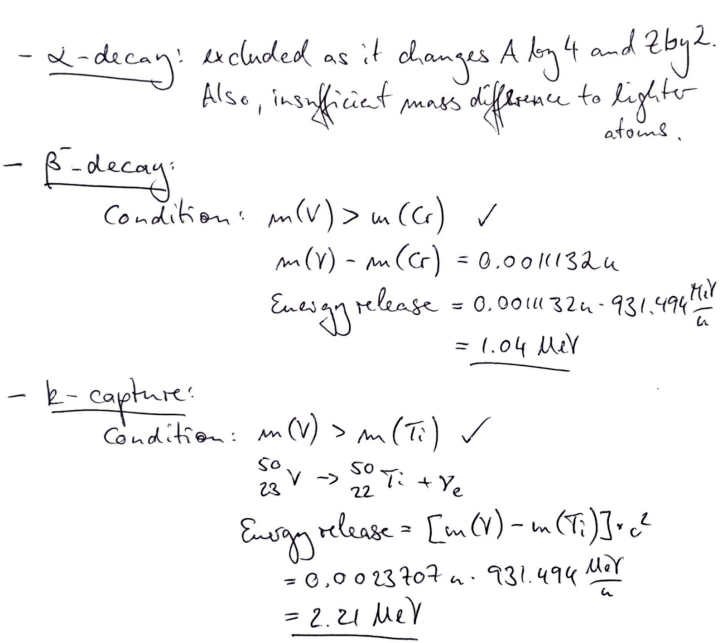 - α-decay: excluded as it changes A by 4 and Z by 2.
Also, insufficient mass difference to lighter
atoms.
- β⁻-decay:
Condition: m(V) > m(Cr) ✓
m(V) - m(Cr) = 0.0011132u
Energy release = 0.0011132u · 931.494 MeV/u
= 1.04 MeV
- k-capture:
Condition: m(V) > m(Ti) ✓
⁵⁰₂₃V -> ⁵⁰₂₂Ti + νₑ
Energy release = [m(V) - m(Ti)] · c²
= 0,0023707 u · 931.494 MeV/u
= 2.21 MeV